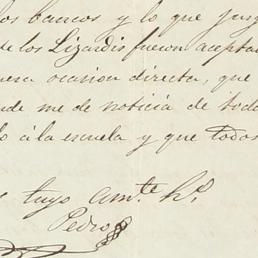 los bancos y lo que juzg
de los Lizardis fueron acepta
ocasion directa, que
me de noticia de todo
o á la escuela y que todos
tuyo amte. hº.
Pedro